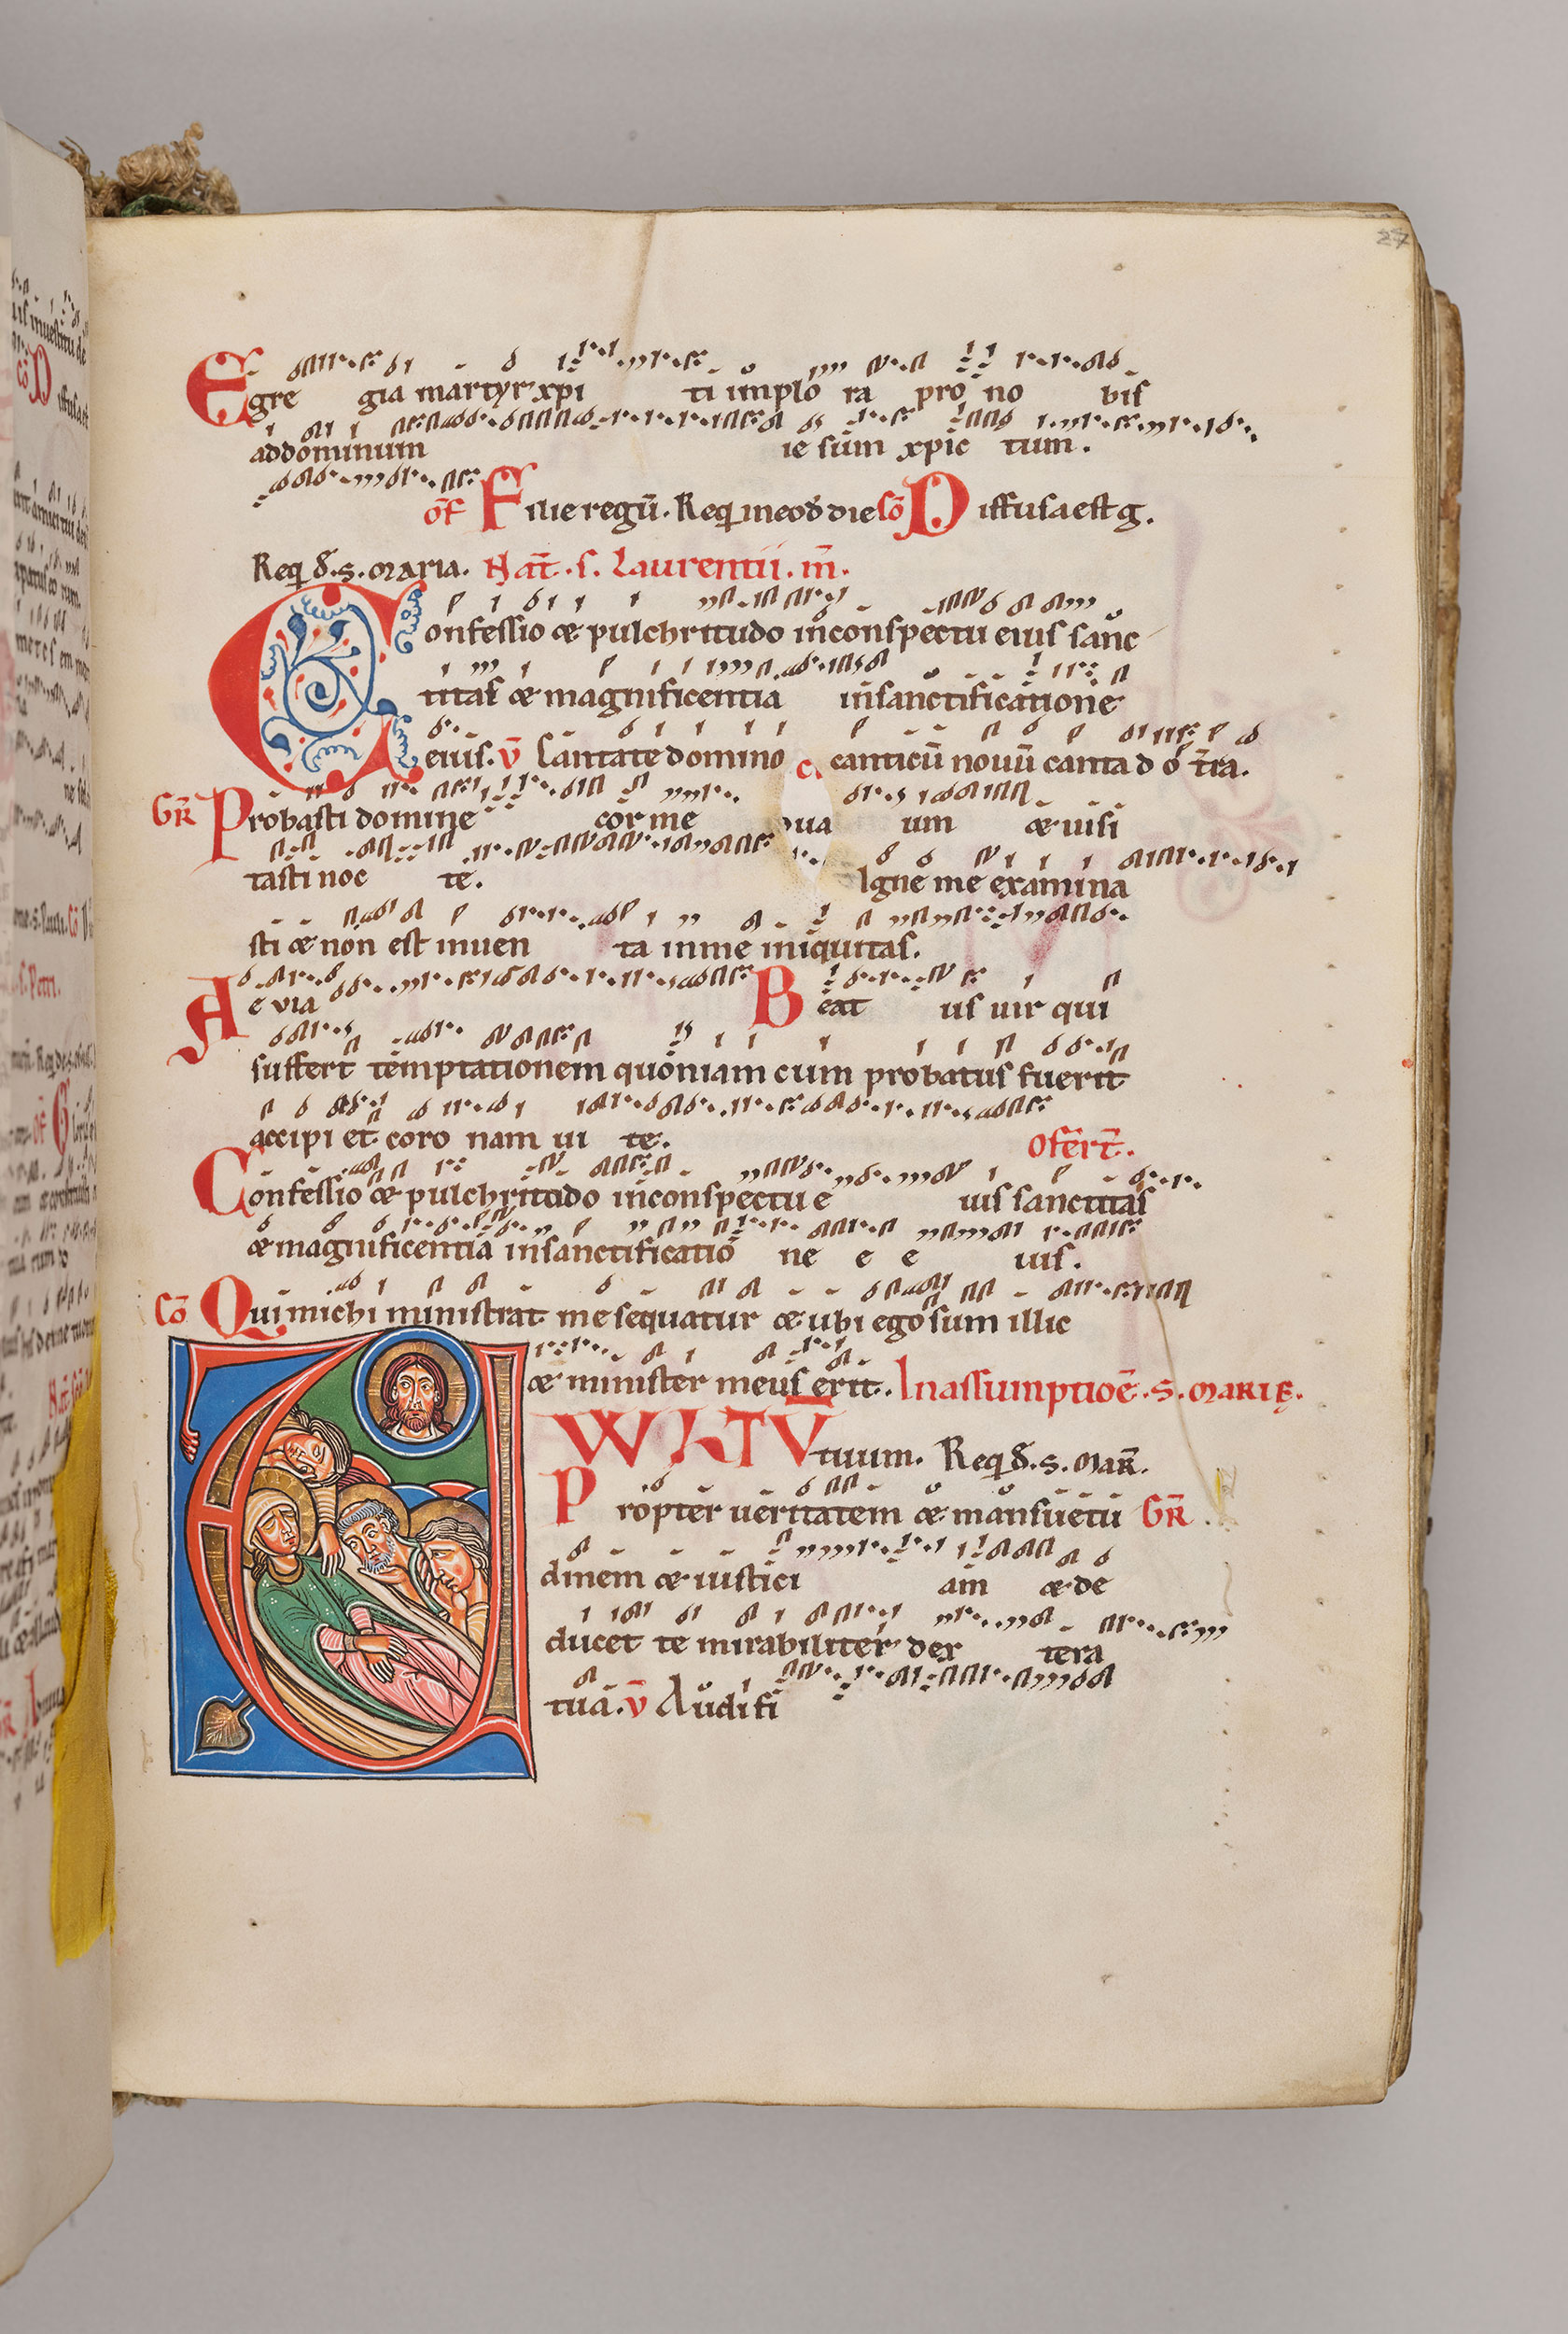 27
Egre gia martyr xpi ti implo ra pro no bis
ad dominum ie sum xpic tum.
of Filie regū. Req in eod̄ die Cō Diffusa est g.
Req d̄. s. maria. Nat̄. s. Laurentii. m̄.
Confessio & pulchritudo in conspectu eius sanc
titas & magnificentia in sanctificatione
eius. v̄ Cantate domino canticū nouū canta d o t̄ra.
GR Probasti domine cor me um & uisi
tasti noc te. Igne me examina
sti & non est inuen ta in me iniquitas.
Ae via Beat us uir qui
suffert temptationem quoniam cum probatus fuerit
accipi et coro nam ui te.
Ofert̄.
Confessio & pulchritudo in conspectu e ius sanctitas
& magnificentia in sanctificatio ne e e ius.
Cō Qui michi ministrat me sequatur & ubi ego sum illic
& minister meus erit. In assumptioē. s. MARIĘ.
tuum. Req d̄. s. MAR̄.
Propter ueritatem & mansuetu GR
dinem & iustici am & de
ducet te mirabiliter dex tera
tua. v̄ Audi fi